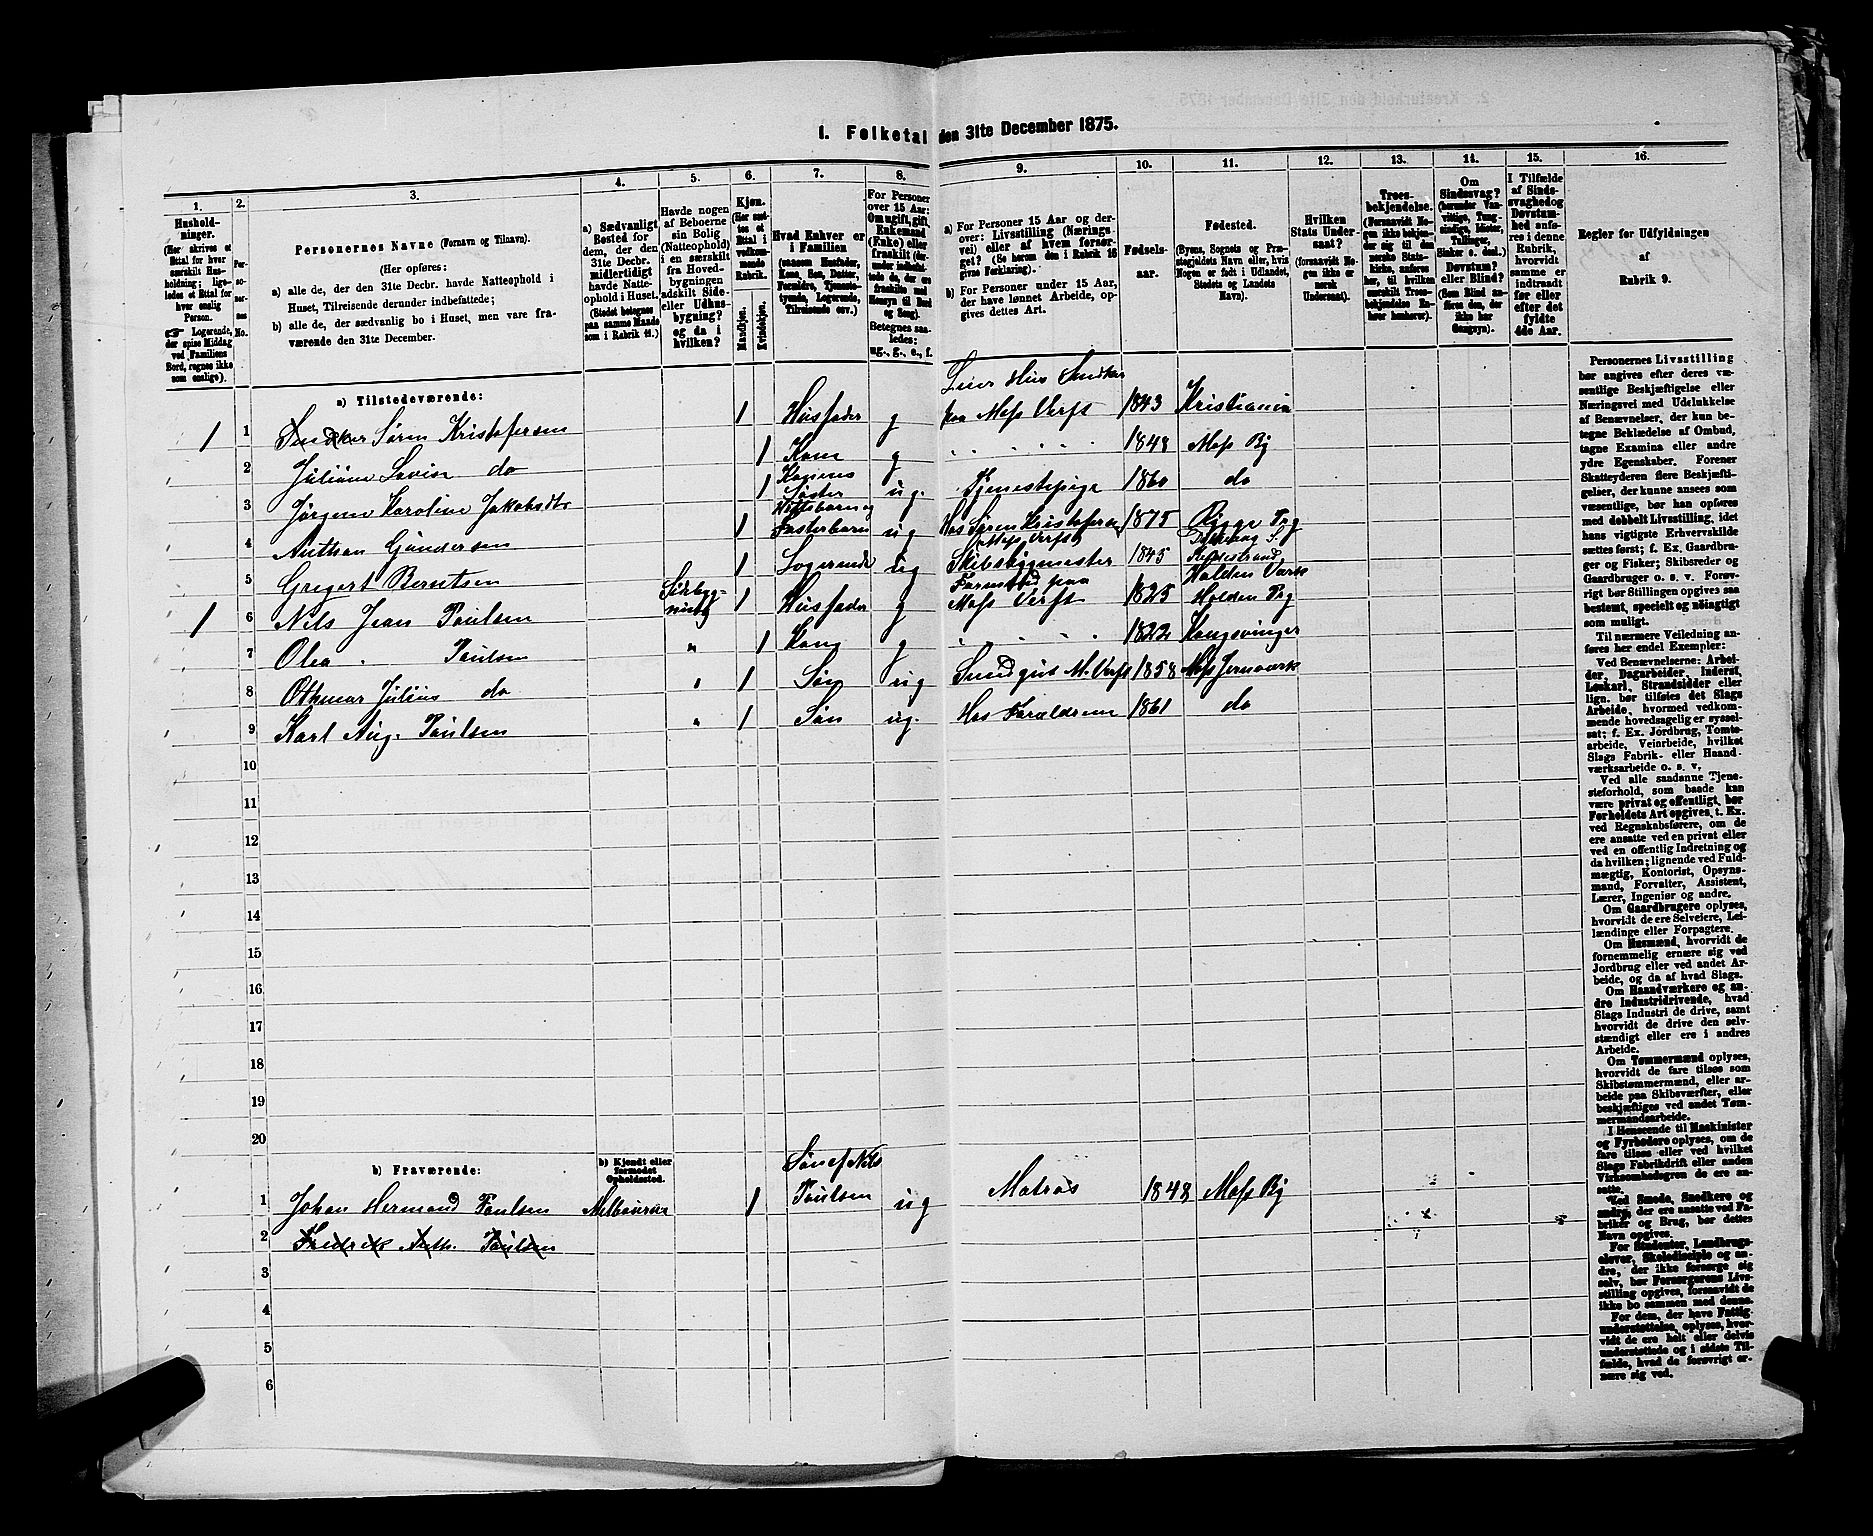 1. Folketal den 31te December 1875.
1.
Hushold-
ninger.
(Her skrives et
Ettal for hver
særskilt Hus-
holdning; lige-
ledes et Ettal for
hver enslig
Person.
☞ Logerende,
der spise Middag
ved Familiens
Bord, regnes ikke
som enslige).
2.
Per-
so-
ner-
nes
No.
3.
Personernes Navne (Fornavn og Tilnavn).
(Her opføres:
a) alle de, der den 31te Decbr. havde Natteophold i
Huset, Tilreisende derunder indbefattede;
b) alle de, der sædvanlig bo i Huset, men vare fra-
værende den 31te December.
4.
a) Sædvanligt
Bosted for
dem, der den
31te Decbr.
midlertidigt
havde Natte-
ophold i Huset.
(Stedet betegnes
paa samme Maade
som i Rubrik 11.)
5.
Havde nogen
af Beboerne
sin Bolig
(Natteophold)
i en særskilt
fra Hoved-
bygningen
adskilt Side-
eller Udhus-
bygning?
og da i
hvilken?
6.
Kjøn.
(Her sæt-
tes et
Ettal i
vedkom-
mende
Rubrik.
Mandkjøn.
Kvindekjøn.
7.
Hvad Enhver er
i Familien
(saasom Husfader,
Kone, Søn, Datter,
Forældre, Tjeneste-
tyende, Logerende,
Tilreisende osv.)
8.
For Personer
over 15 Aar:
Om ugift, gift,
Enkemand
(Enke) eller
fraskilt (der-
under indbefat-
tede de, der ere
fraskilte med
Hensyn til Bord
og Seng).
Betegnes saa-
ledes:
ug., g., e., f.
9.
a) For Personer 15 Aar og der-
over: Livsstilling (Nærings-
vei) eller af hvem forsør-
get? (Se herom den i Rubrik 16
givne Forklaring).
b) For Personer under 15 Aar,
der have lønnet Arbeide, op-
gives dettes Art.
10.
Fødsels-
aar.
11.
Fødested.
(Byens, Sognets og Præ-
stegjeldets Navn eller, hvis
Nogen er født i Udlandet,
Stedets og Landets
Navn).
12.
Hvilken
Stats Under-
saat?
(forsaavidt No-
gen ikke er
norsk
Undersaat).
13.
Troes-
bekjendelse.
(Forsaavidt No-
gen ikke bekjen-
der sig til den
norske Stats-
kirke, anføres
her, til hvilken
særskilt Troes-
bekjendelse En-
hver henhører).
14.
Om
Sindssvag?
(herunder Van-
vittige, Tung-
sindige, Idioter,
Tullinger,
Sinker o. desl.)
Døvstum?
eller Blind?
(Som Blind an-
føres den, der
ikke har
Gangsyn).
15.
I Tilfælde
af Sinds-
svaghed og
Døvstum-
hed anfø-
res i denne
Rubrik,
hvorvidt
samme er
indtraadt
før eller
efter det
fyldte
4de Aar.
16.
Regler for Udfyldningen
af
Rubrik 9.
a) Tilstedeværende:
1 1 Snedker Søren Kristofersen 1 Husfader g Leier Hus Snedker paa Moss Verft 1843 Kristiania
2 Juliane Lovise do 1 Kone g " " " " 1848 Moss By
3 Jørgine Karoline Jakobsdtr 1 Konens Søster ug. Tjenestepige 1860 do
4 Anthon Gundersen 1 Pleiebarn og Fosterbarn ug Hos Søren Kristofersen 1875 Rygge Prg
5 Gregert Berntsen 1 Logerende ug Skibsbygmester (Moss Verft) 1845
1 6 Nils Jean Paulsen Sidebyg-ning 1 Husfader g Formand paa Moss Verft 1825 Holden Værk Holden Prg
7 Olea " Paulsen " 1 Kone g " " " " 1822 Kongsvinger
8 Othmar Julius do " 1 Søn ug M. Verft 1858 Moss Jernværk
9 Karl Aug. Paulsen " 1 Søn ug. Hos Forældrene 1861 do
10
11
12
13
14
15
16
17
18
19
20
b) Fraværende:
b) Kjendt eller
formodet
Opholdssted.
1 Johan Hermand Paulsen Melbourne 1 Søn af Nils Paulsen ug Matros 1848 Moss By
2 Fredrik Anth. Paulsen
3
4
5
6
Personernes Livsstilling
bør angives efter deres væ-
sentlige Beskjæftigelse eller
Næringsvei med Udelukkelse
af Benævnelser, der kun be-
tegne Beklædelse af Ombud,
tagne Examina eller andre
ydre Egenskaber. Forener
Skatteyderen flere Beskjæfti-
gelser, der kunne ansees som
væsentlige, bør han opføres
med dobbelt Livsstilling, idet
hans vigtigste Erhvervskilde
sættes først; f. Ex. Gaardbru-
ger og Fisker; Skibsreder og
Gaardbruger o. s. v. Forøv-
rigt bør Stillingen opgives saa
bestemt, specielt og nøiagtigt
som muligt.
Til nærmere Veiledning an-
føres her endel Exempler:
Ved Benævnelserne: Arbei-
der, Dagarbeider, Inderst,
Løskarl, Strandsidder eller
lign. bør tilføies det Slags
Arbeide, hvormed vedkom-
mende hovedsagelig er syssel-
sat; f. Ex. Jordbrug, Tomte-
arbeide, Veiarbeide, hvilket
Slags Fabrik- eller Haand-
værksarbeide o. s. v.
Ved alle saadanne Tjene-
steforhold, som baade kan
være privat og offentligt, bør
Forholdets Art opgives, t. Ex.
ved Regnskabsførere, om de
ere ansatte ved en privat eller
ved en offentlig Indretning og
da hvilken; lignende ved Fuld-
mægtig, Kontorist, Opsyns-
mand, Forvalter, Assistent,
Lærer, Ingeniør og andre.
Om Gaardbrugere oplyses,
hvorvidt de ere Selveiere, Lei-
lændinge eller Forpagtere.
Om Husmænd, hvorvidt de
fornemmelig ernære sig ved
Jordbrug eller ved andet Ar-
beide, og da af hvad Slags.
Om Haandværkere og an-
dre Industridrivende, hvad
Slags Industri de drive, samt
hvorvidt de drive den selv-
stændigt eller ere i andres
Arbeide.
Om Tømmermænd oplyses,
hvorvidt de fare tilsøs som
Skibstømmermænd, eller ar-
beide paa Skibsværfter, eller
beskjæftiges ved andet Tøm-
mermandsarbeide.
I Henseende til Maskinister
og Fyrbødere oplyses, om de
fare tilsøs eller ved hvilket
Slags Fabrikdrift eller anden
Virksomhedsgren de ere an-
satte.
Ved Smede, Snedkere og
andre, der ere ansatte ved Fa-
briker og Brug, bør dettes
Navn opgives.
For Studenter, Landbrugs-
elever, Skoledisciple og an-
dre, der ikke forsørge sig
selv, bør Forsørgerens Livs-
stilling opgives, forsaavidt de
ikke bo sammen med denne.
For dem, der have Fattig-
understøttelse, oplyses, hvor-
vidt de ere helt eller delvis
understøttede og i sidste Til-
fælde, hvad de forøvrigt er-
nære sig ved.